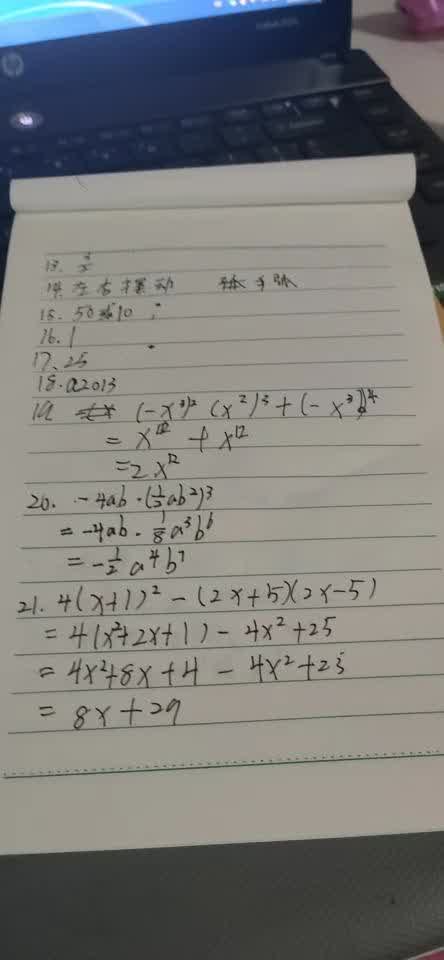 hp
14. 左右摆动
16. 1
17. 25
18. a2013
19 (-x³)² (x²)³ + (-x³)⁴
= x¹² + x¹²
= 2x¹²
20. -4ab · (½ab²)³
= -4ab · ⅛a³b⁶
= -½a⁴b⁷
21. 4(x+1)² - (2x+5)(2x-5)
= 4(x²+2x+1) - 4x²+25
= 4x²+8x+4 - 4x²+25
= 8x+29